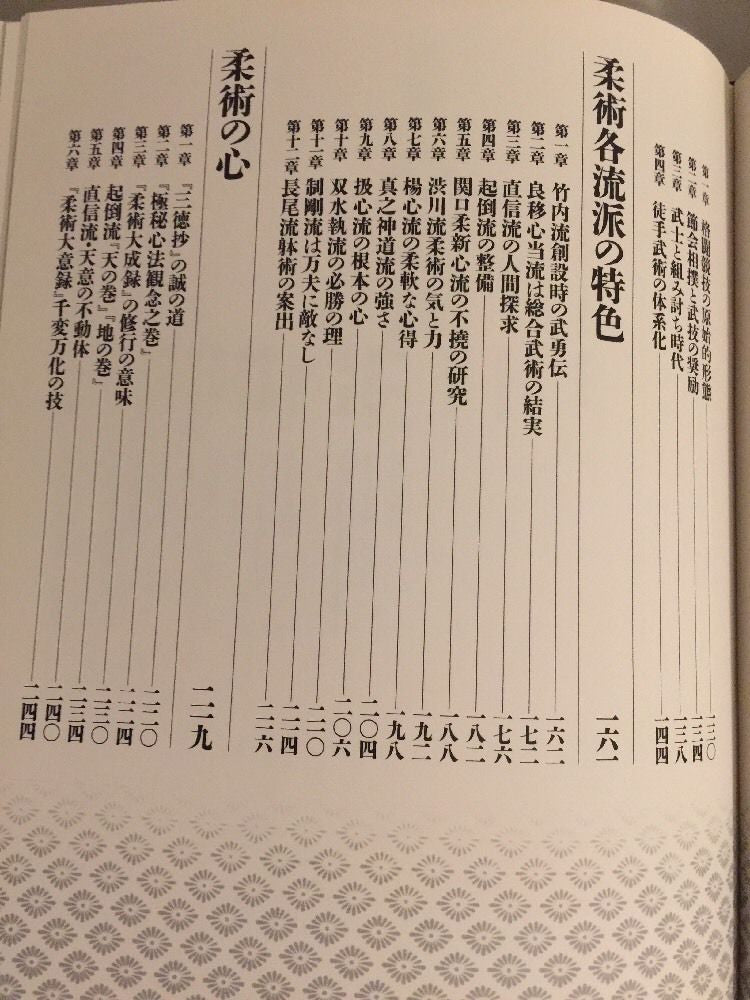 第一章 格闘競技の原始的形態 一三〇
第二章 節会相撲と武技の奨励 一三四
第三章 武士と組み討ち時代 一三八
第四章 徒手武術の体系化 一四四
柔術各流派の特色 一六一
第一章 竹内流創設時の武勇伝 一六二
第二章 良移心当流は総合武術の結実 一七二
第三章 直信流の人間探求 一七六
第四章 起倒流の整備 一八二
第五章 関口柔新心流の不撓の研究 一八八
第六章 渋川流柔術の気と力 一九二
第七章 楊心流の柔軟な心得 一九八
第八章 真之神道流の強さ 二〇四
第九章 扱心流の根本の心 二〇六
第十章 双水執流の必勝の理 二一〇
第十一章 制剛流は万夫に敵なし 二一四
第十二章 長尾流躰術の案出 二一六
柔術の心 二一九
第一章 『三徳抄』の誠の道 二二〇
第二章 『極秘心法観念之巻』 二二四
第三章 『柔術大成録』の修行の意味 二三〇
第四章 起倒流『天の巻』『地の巻』 二三四
第五章 直信流・天意の不動体 二四〇
第六章 『柔術大意録』千変万化の技 二四四